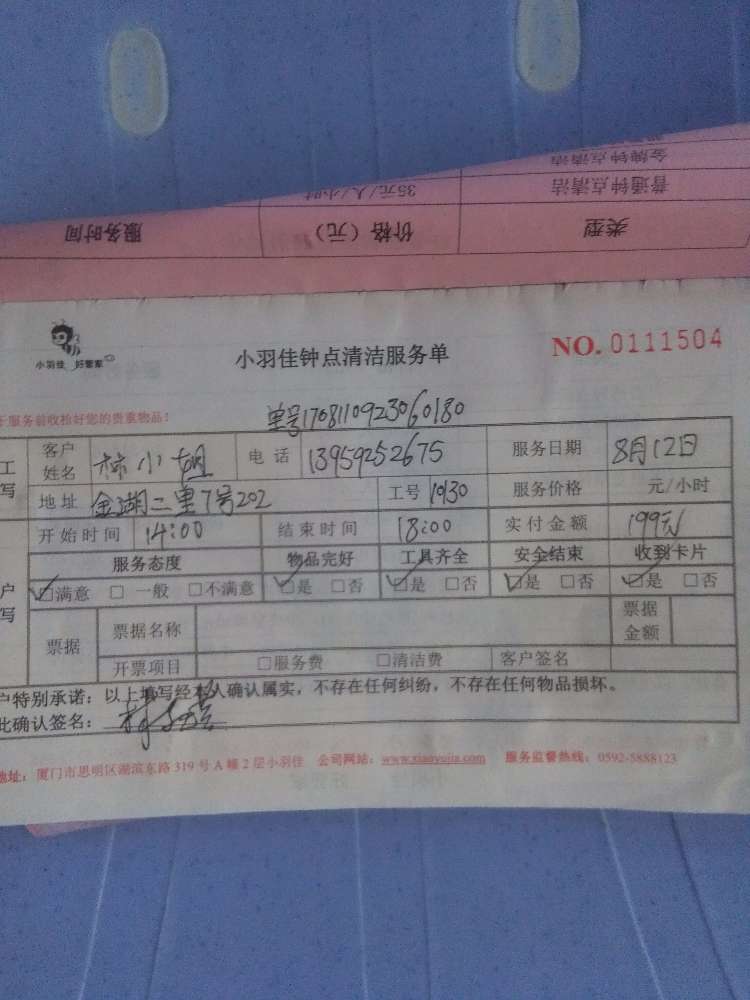 金牌钟点清洁
普通钟点清洁 35元/人/小时
类型 价格（元） 服务时间
小羽佳 好管家
小羽佳钟点清洁服务单
NO. 0111504
服务前收拾好您的贵重物品！
单号1708110923060180
客户姓名 林小姐 电话 13959252675 服务日期 8月12日
地址 金湖二里7号202 工号 10130 服务价格 元/小时
开始时间 14:00 结束时间 18:00 实付金额 199元
服务态度 物品完好 工具齐全 安全结束 收到卡片
☑满意 □ 一般 □不满意 ☑是 □否 ☑是 □否 ☑是 □否 ☑是 □否
票据 票据名称 票据金额
开票项目 □服务费 □清洁费 客户签名
户特别承诺：以上填写经本人确认属实，不存在任何纠纷，不存在任何物品损坏。
此确认签名：
地址：厦门市思明区湖滨东路 319 号 A 幢 2 层小羽佳 公司网站：www.xiaoyujia.com 服务监督热线：0592-5888123